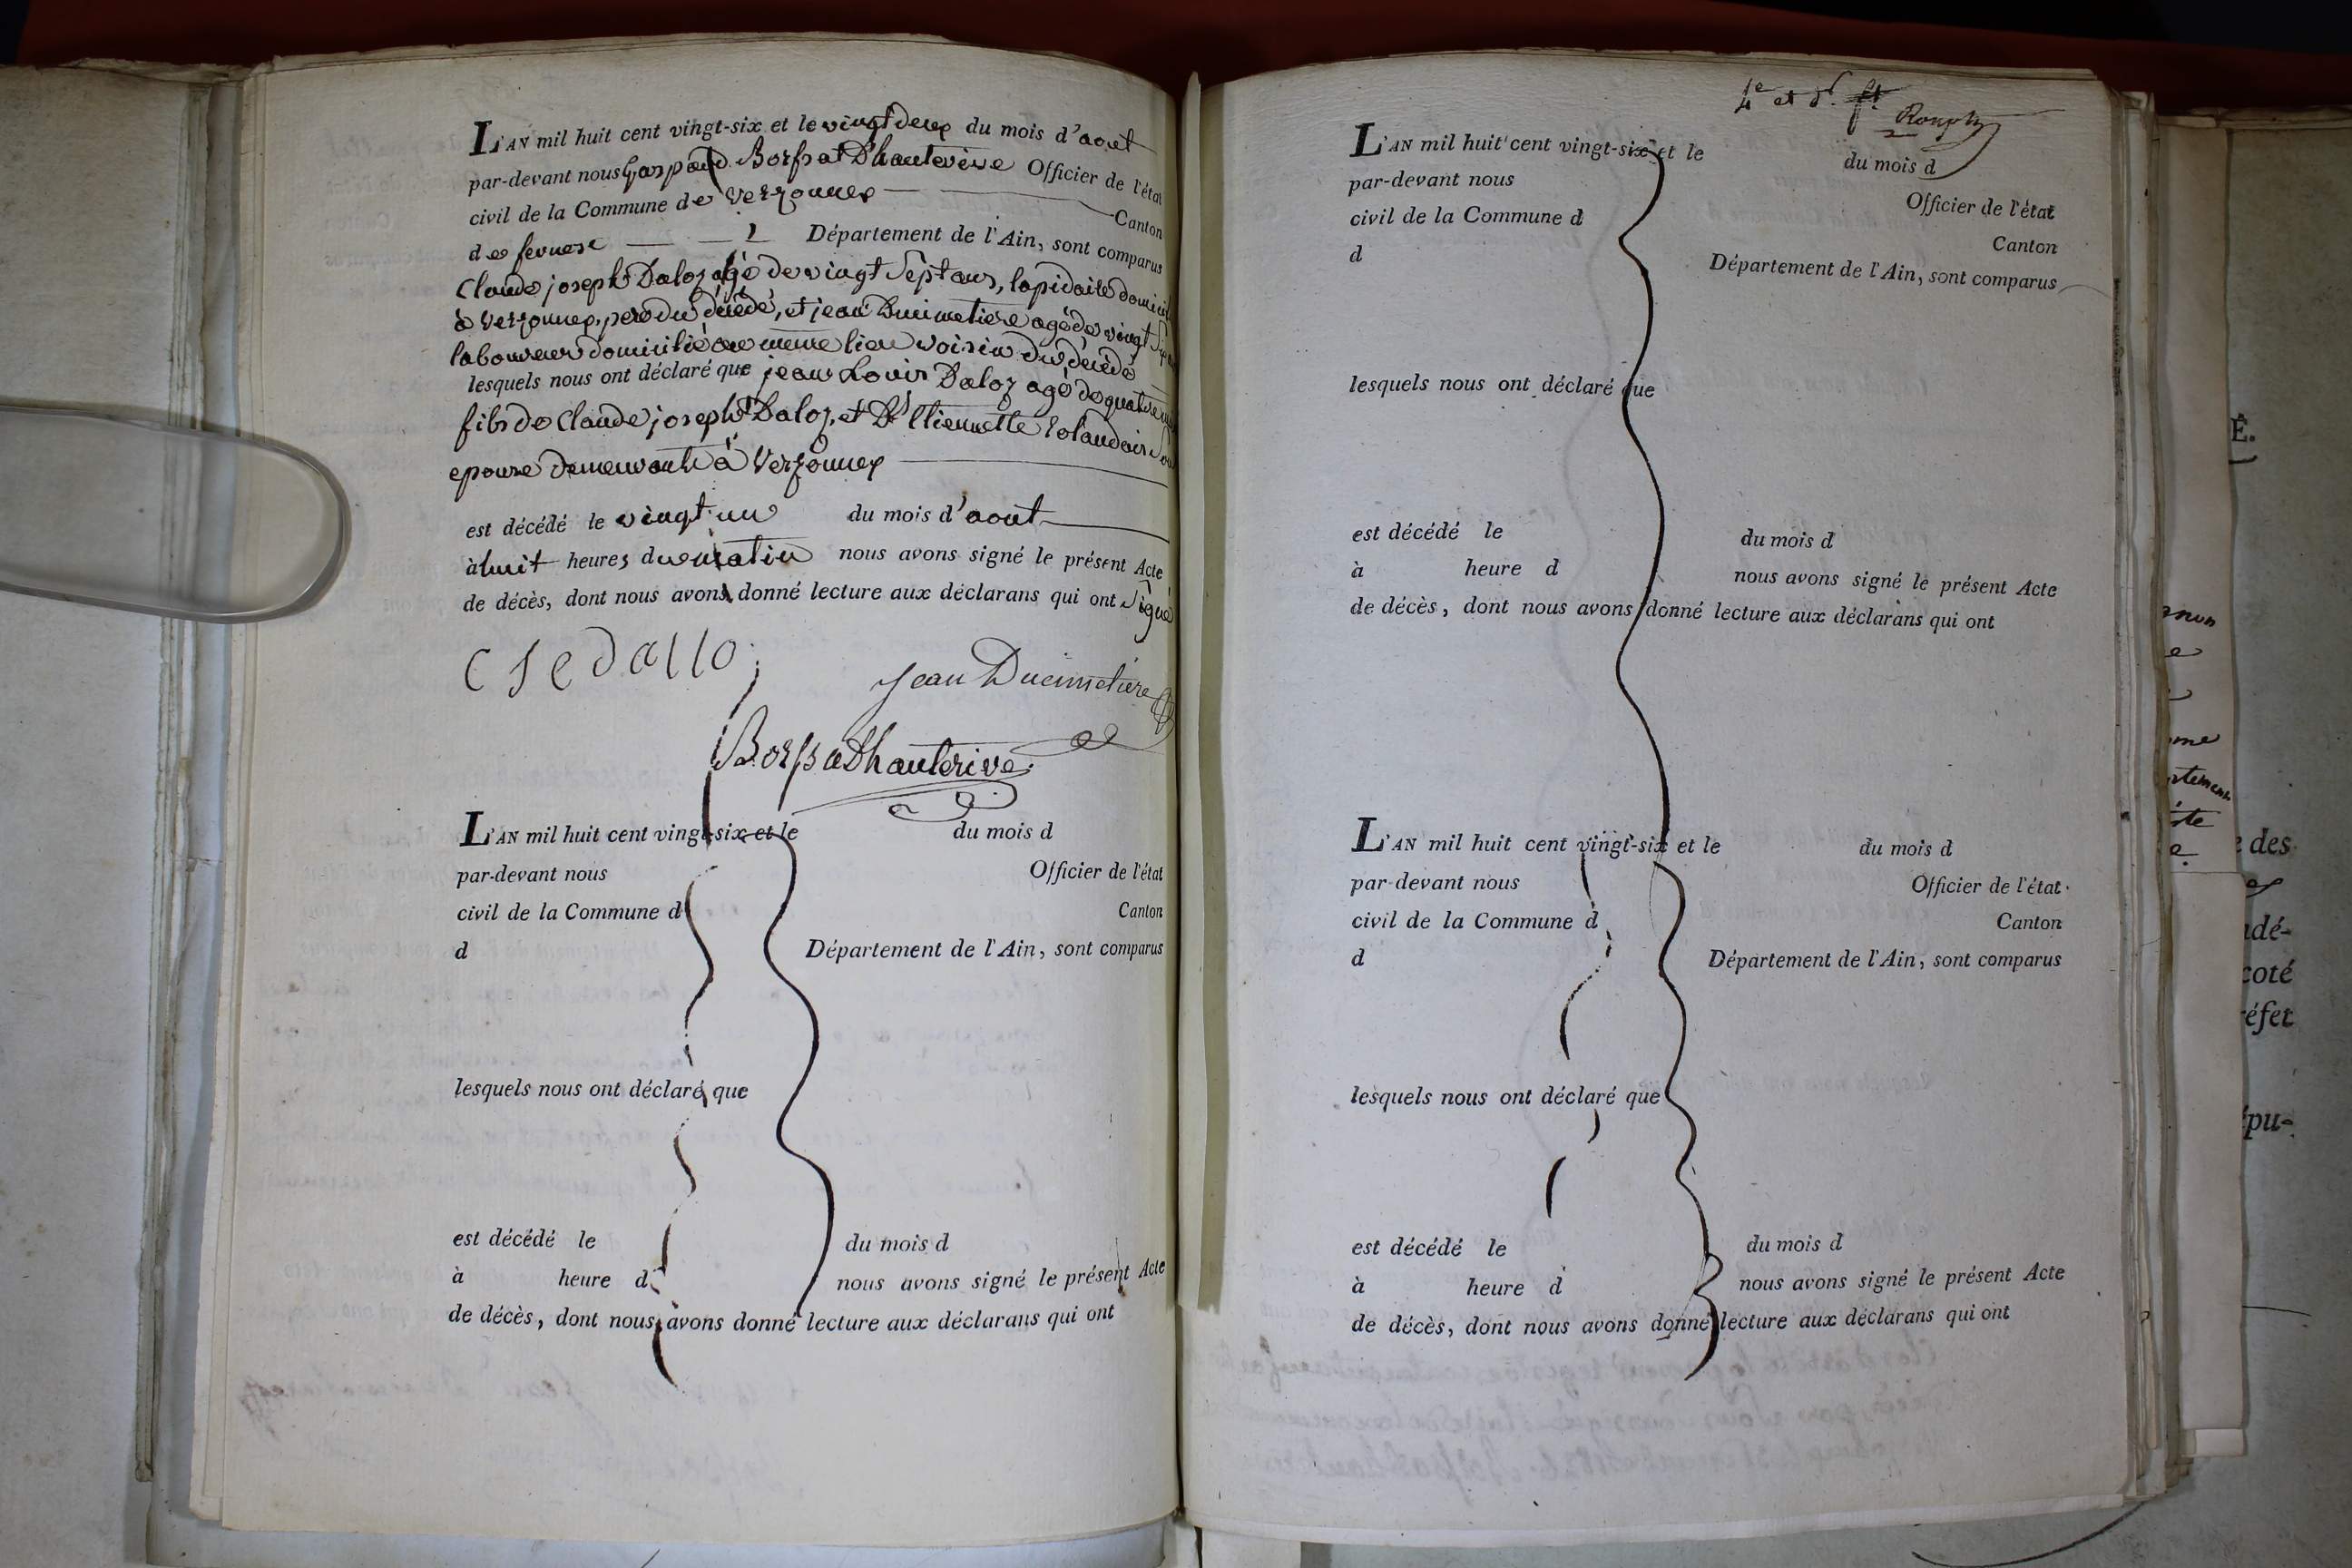 L'AN mil huit cent vingt-six et le vingt deux du mois d'aout
par-devant nous Gaspard Borssat D'hauterive Officier de l'état
civil de la Commune de Versonnex Canton
de fernex Département de l'Ain, sont comparus
Claude joseph Daloz agé de vingt sept ans, lapidaire domicil
à Versonnex, pere du décédé, et jean Ducimetiere agé de vingt
laboureur domicilié au meme lieu voisin du décédé
lesquels nous ont déclaré que jean Louis Daloz agé de quatre
fils de Claude joseph Daloz, et De Etiennette
epouse demeurante à Versonnex
est décédé le vingt un du mois d'aout
à huit heures du matin nous avons signé le présent Acte
de décès, dont nous avons donné lecture aux déclarans qui ont signé
Jean Ducimetiere
Borssat Dhauterive
L'AN mil huit cent vingt-six et le du mois d
par-devant nous Officier de l'état
civil de la Commune d Canton
d Département de l'Ain, sont comparus
lesquels nous ont déclaré que
est décédé le du mois d
à heure d nous avons signé le présent Acte
de décès, dont nous avons donné lecture aux déclarans qui ont
4e et
L'AN mil huit cent vingt-six et le du mois d
par-devant nous Officier de l'état
civil de la Commune d Canton
d Département de l'Ain, sont comparus
lesquels nous ont déclaré que
est décédé le du mois d
à heure d nous avons signé le présent Acte
de décès, dont nous avons donné lecture aux déclarans qui ont
L'AN mil huit cent vingt-six et le du mois d
par-devant nous Officier de l'état
civil de la Commune d Canton
d Département de l'Ain, sont comparus
lesquels nous ont déclaré que
est décédé le du mois d
à heure d nous avons signé le présent Acte
de décès, dont nous avons donné lecture aux déclarans qui ont
É.
des
dé-
coté
éfet
pu-